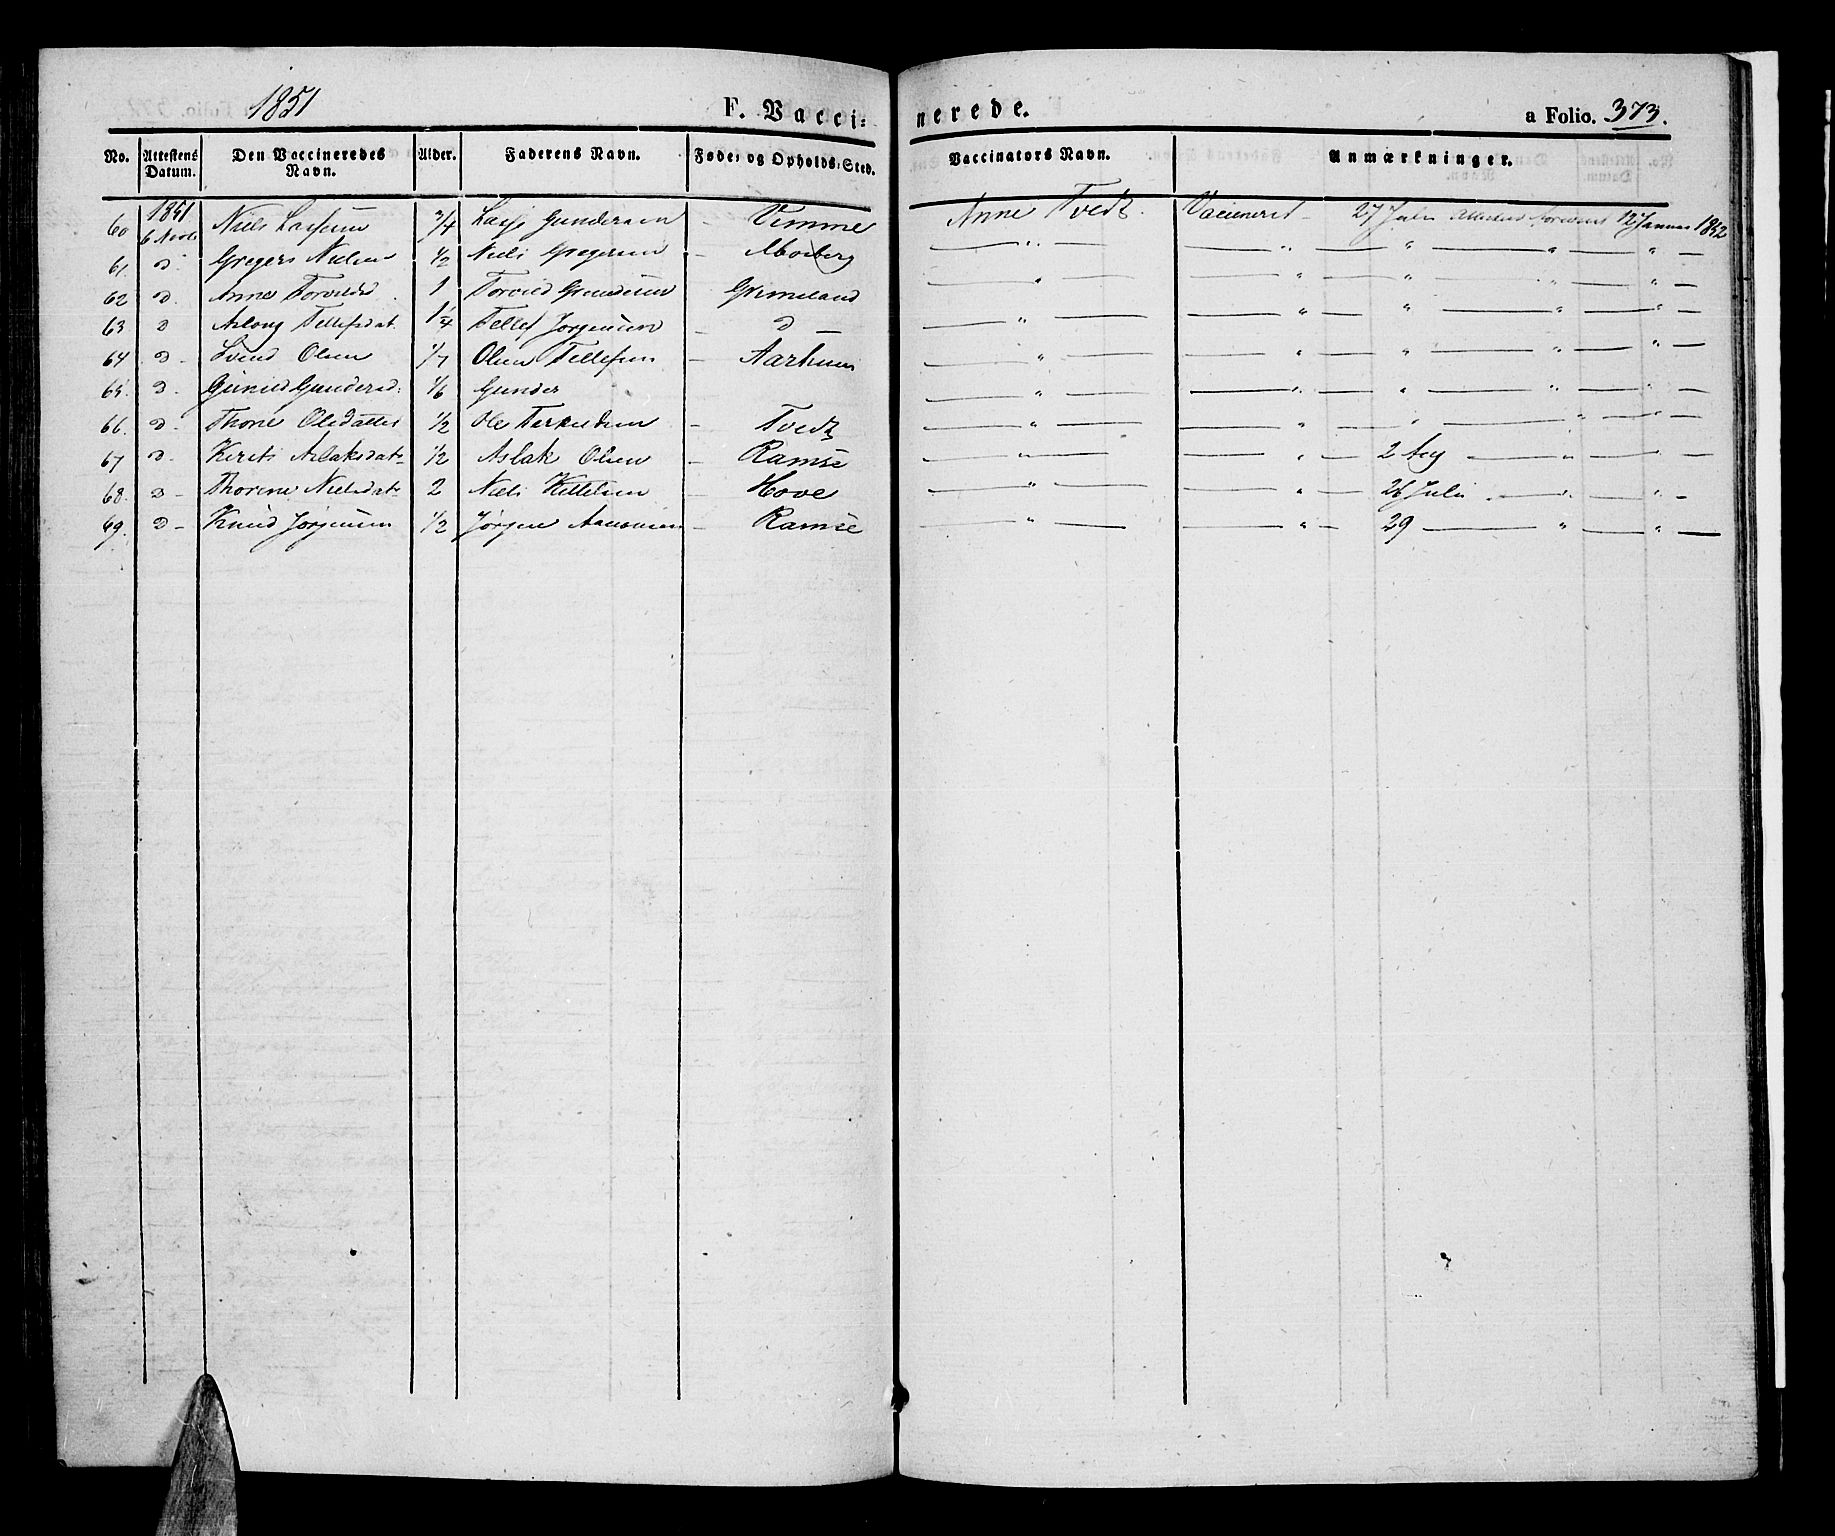 1851 F. Vacci: nerede. a Folio. 373.
No. Attestens Datum. Den Vaccineredes Navn. Alder. Faderens Navn. Føde: og Opholds:Sted. Vaccinators Navn. Anmærkninger.
1851
60 6 Novb Niels Larsen 3/4 Lars Gundersen – Vemme Anne Tvedt Vaccineret – 27 Juli Attesten 12 Januar 1852
61. d Gregers Nielsen 1/2 Niels Gregersen – Moeberg — " — — " — " — " — " —
62 d. Anne 1 Grimeland — " — — " — " — " — " —
63 d Asloug Tellefsdat. 1 1/4 Tellef Jørgensen – d — — " — — " — " — " — " —
64 d. Svend Olsen 1/7 Olsen Tellefsen – Aarhuus — " — — " — " — " — " —
65. d. Gundersd: 1/6 Gunder — " — — " — " — " — " —
66. d. Thone Olsdatter 1/2 Ole Terkeldsen – Tvedt — " — — " — " — " — " —
67 d. Aslaksdat 1/2 Aslak Olsen – Ramse — " — — " — 2 Aug — " — " —
68. d – Thorine Nielsdat 2 Niels Kittelsen – Hove — " — — " — 26 Juli — " — " —
69. d – Knud Jørgensen 1/2 Jørgen Aanonsen – Ramse — " — — " — 29 — " — " —